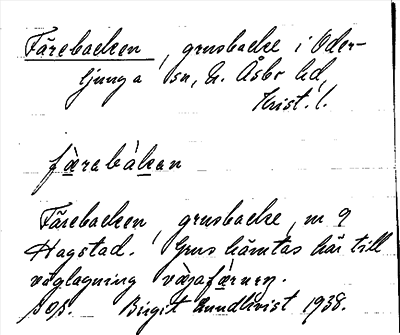 Färebacken, grusbacke i Oder-
ljunga sn, N. Åsbo hd,
Krist. l.
færabákan
Färebacken, grusbacke, m 9
Hagstad. Grus hämtas här till
väglagning
s. o. s. Birgit Lundkvist 1938.